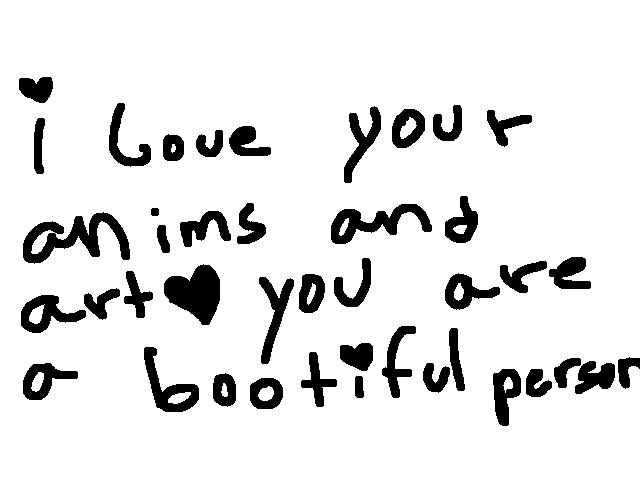 i love your
anims and
art♥ you are
a bootiful person